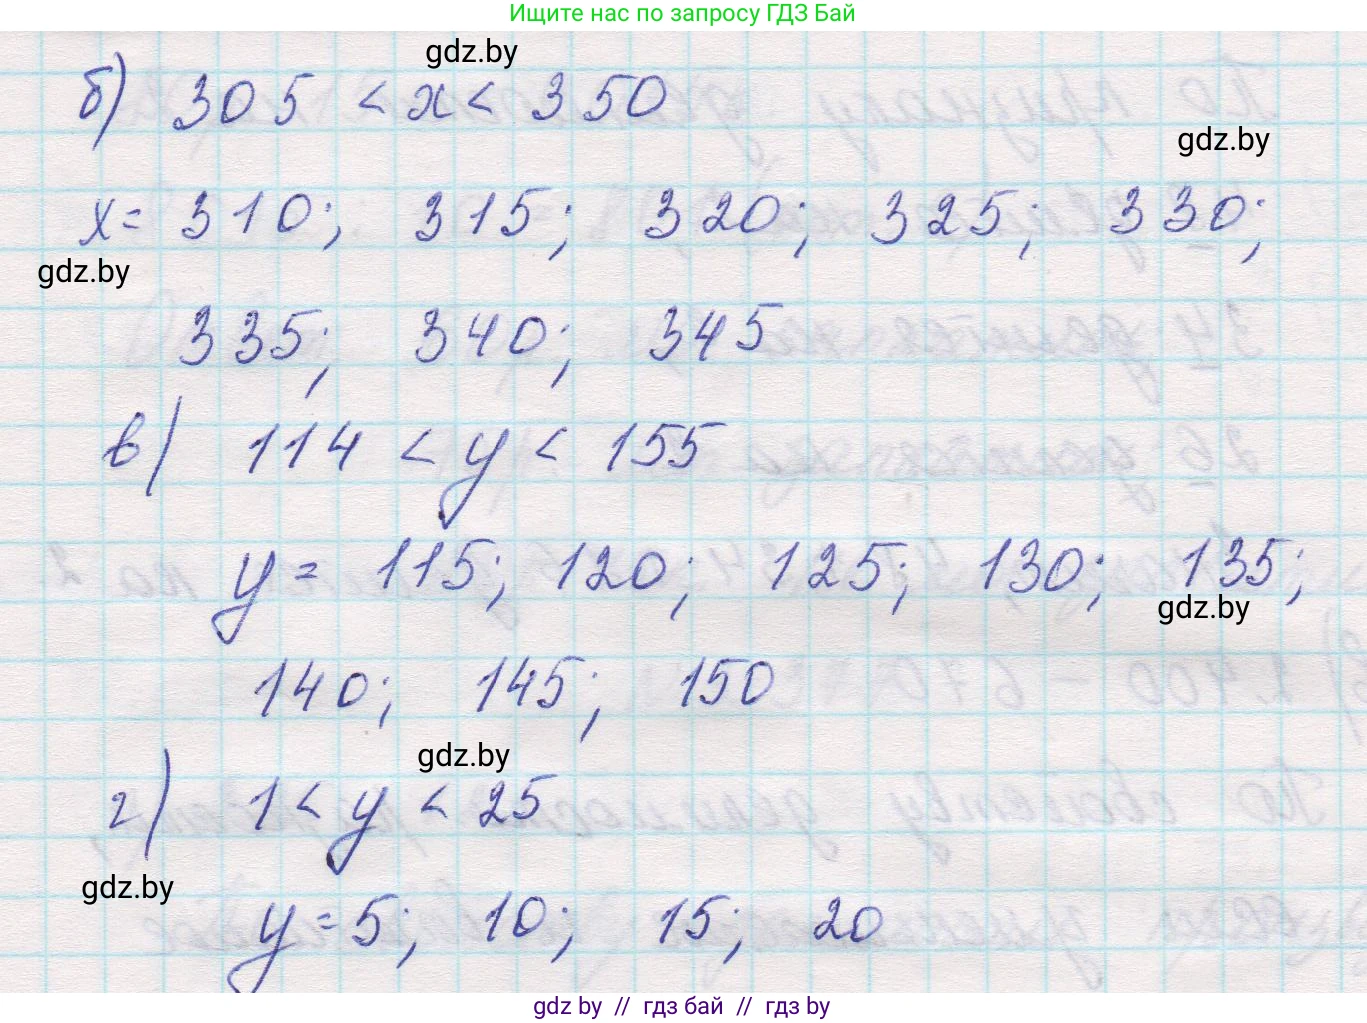 Ищите нас по запросу ГДЗ Бай
gdz.by
б) 305 < x < 350
gdz.by
x = 310; 315; 320; 325; 330;
gdz.by
335; 340; 345
в) 114 < y < 155
y = 115; 120; 125; 130; 135;
gdz.by
140; 145; 150
gdz.by
г) 1 < y < 25
gdz.by
y = 5; 10; 15; 20
gdz by // гдз бай // гдз by